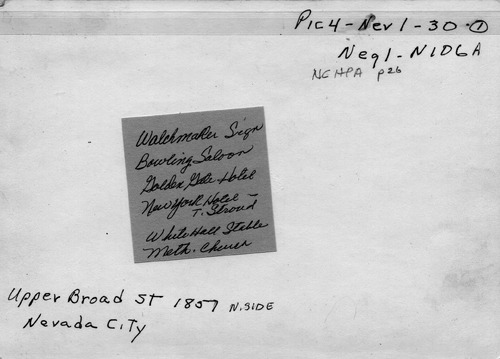 Pic4-Nev1-30 ①
Neg1-N1D6A
NCHPA p26
Watchmaker Sign
Bowling Saloon
Golden Gate Hotel
New York Hotel -
T. Stroud
White Hall Stable
Meth. Church
Upper Broad St 1857 N.SIDE
Nevada City